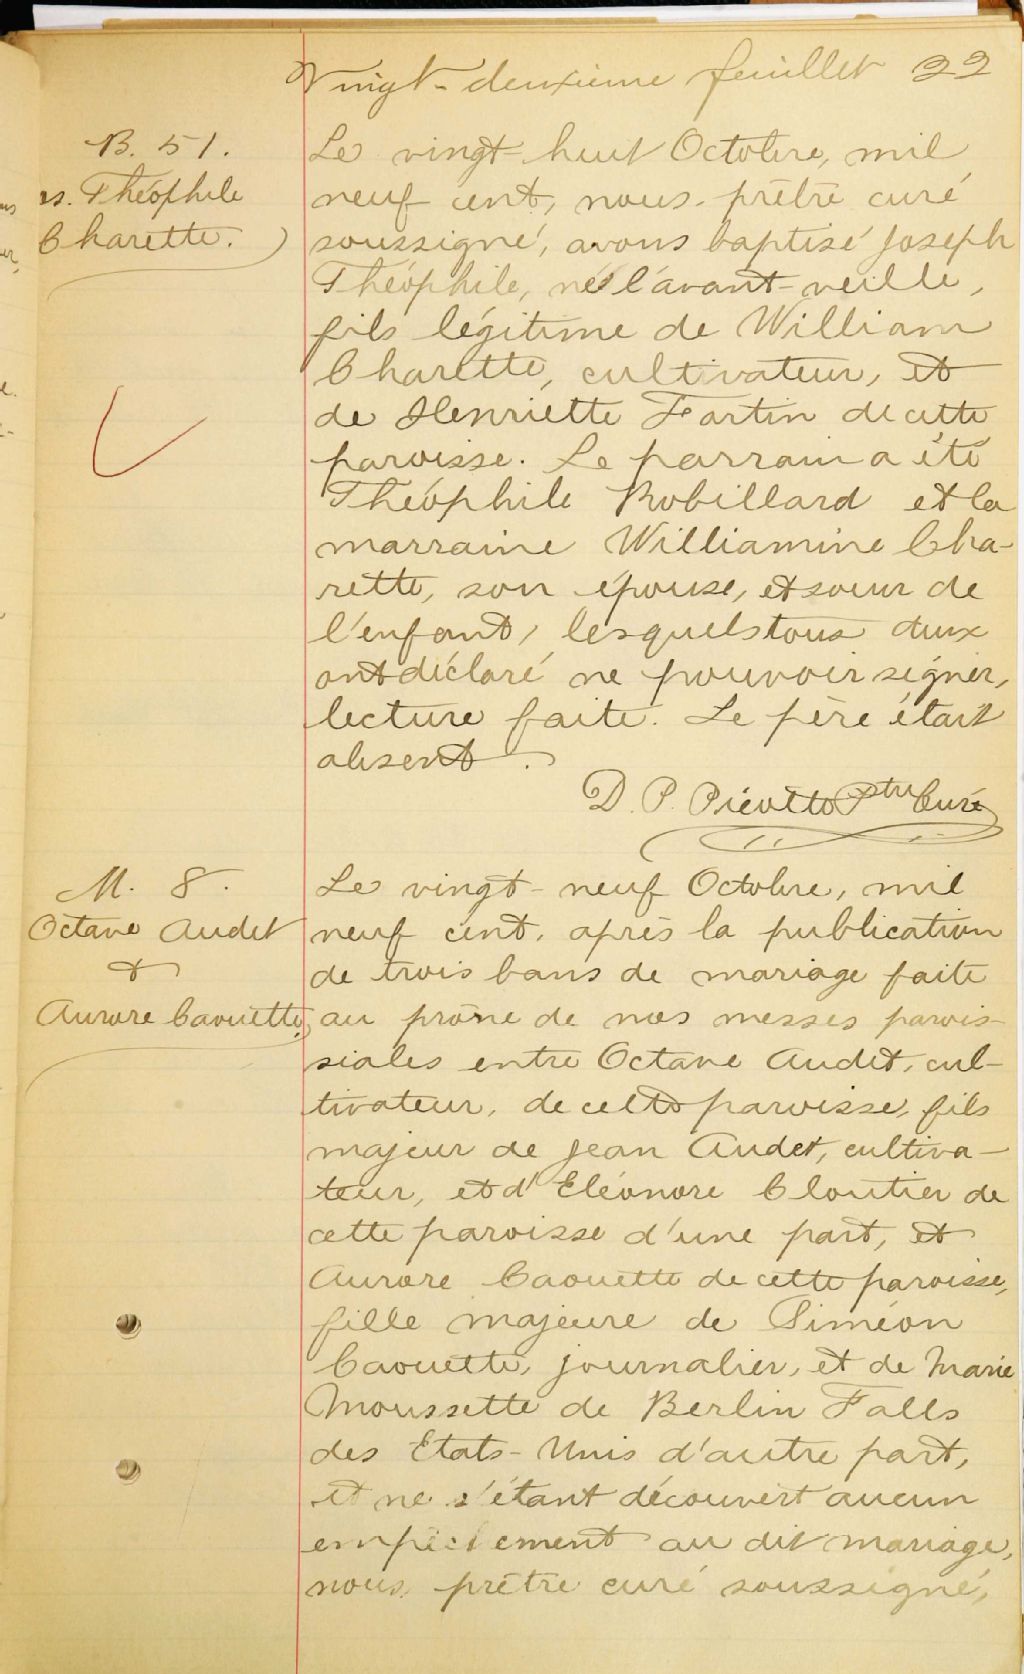 Vingt-deuxième feuillet 22
B. 51.
Js. Théophile
Charette.
Le vingt-huit Octobre, mil
neuf cent, nous, prêtre curé
soussigné, avons baptisé Joseph
Théophile, né l'avant-veille,
fils légitime de William
Charette, cultivateur, et
de Henriette Fortin de cette
paroisse. Le parrain a été
Théophile Robillard et la
marraine Williamine Cha-
rette, son épouse, et soeur de
l'enfant, lesquels tous deux
ont déclaré ne pouvoir signer,
lecture faite. Le père était
absent.
D. P. Picotte Ptre Curé
M. 8.
Octave Audet
et
Aurore Caouette,
Le vingt-neuf Octobre, mil
neuf cent, après la publication
de trois bans de mariage faite
au prône de nos messes parois-
siales entre Octave Audet, cul-
tivateur, de cette paroisse, fils
majeur de Jean Audet, cultiva-
teur, et d'Eléonore Cloutier de
cette paroisse d'une part, et
Aurore Caouette de cette paroisse,
fille majeure de Siméon
Caouette, journalier, et de Marie
Moussette de Berlin Falls
des Etats-Unis d'autre part,
et ne s'étant découvert aucun
empêchement au dit mariage,
nous, prêtre curé soussigné,